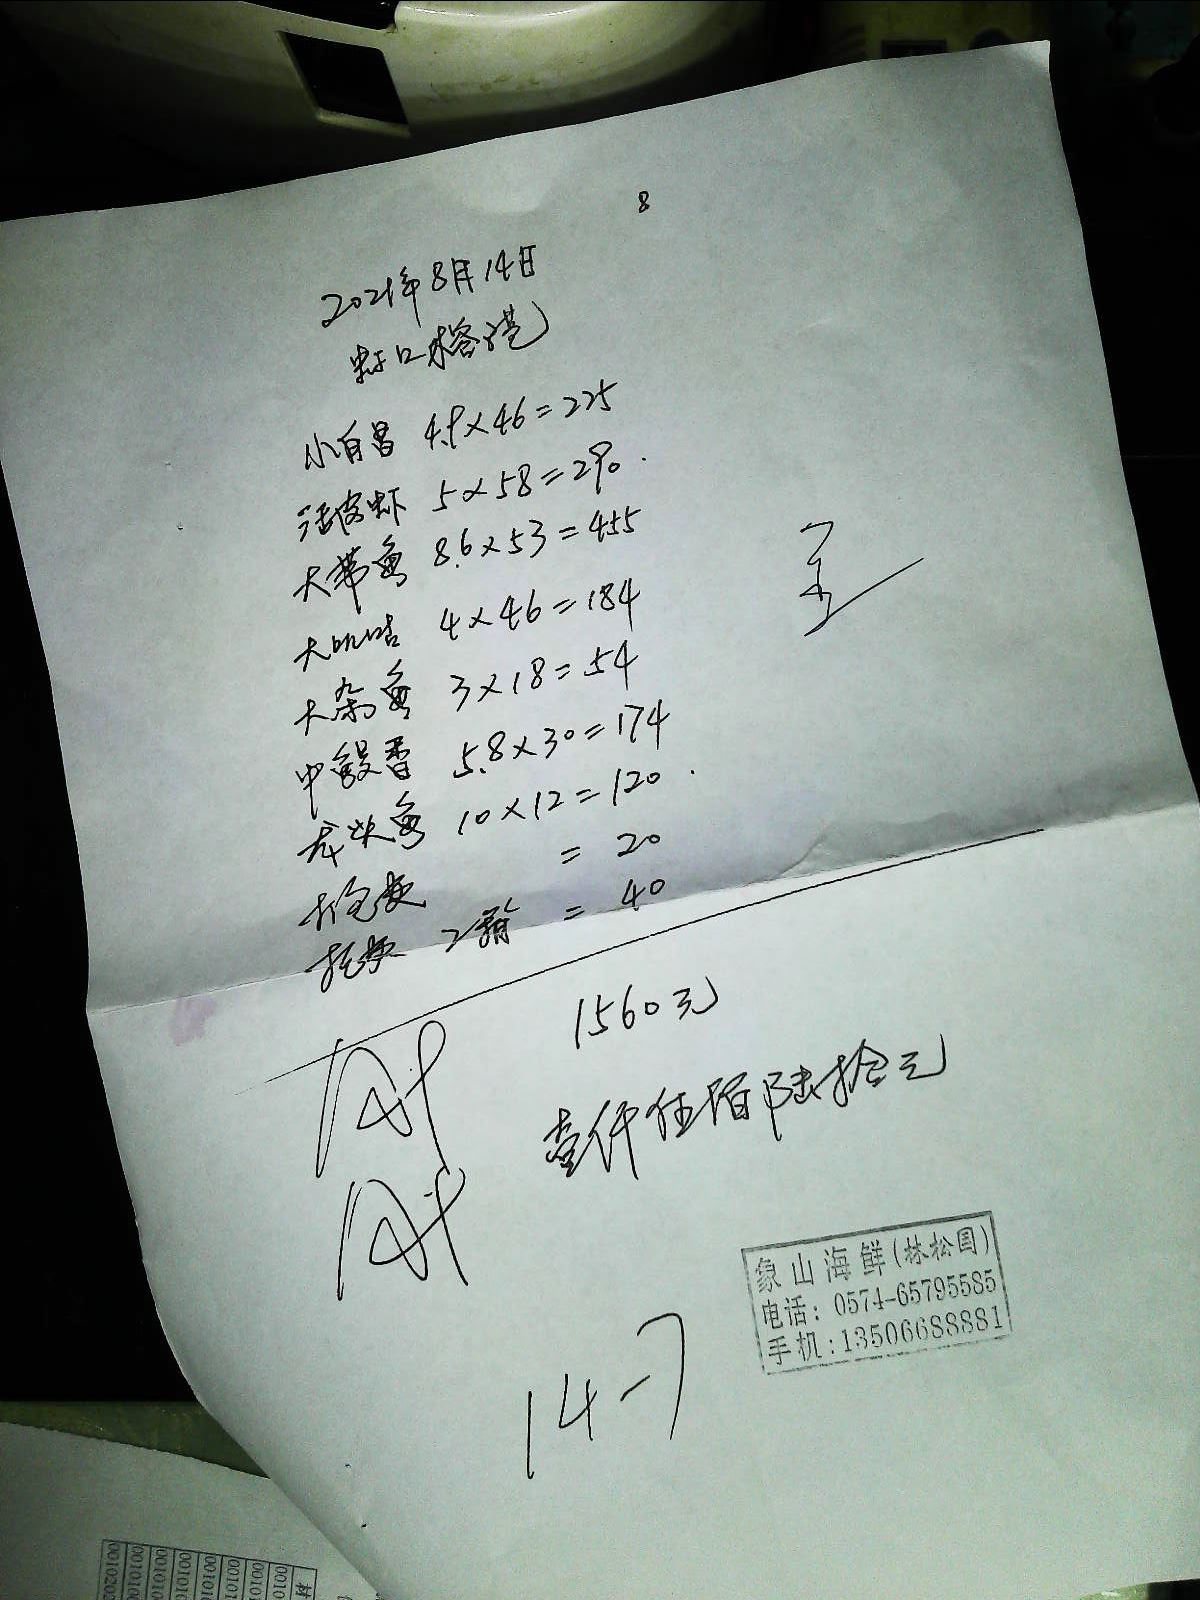 8
2021年8月14日
虹口榕港
小白昌 4.9×46=225
活皮虾 5×58=290.
大带鱼 8.6×53=455
大叽咕 4×46=184
大杂鱼 3×18=54
中鳗香 5.8×30=174
龙头鱼 10×12=120.
打包费 =20
托费 2箱 =40
1560元
壹仟伍佰陆拾元
象山海鲜(林松国)
电话: 0574-65795585
手机:13506688881
14-7
00102020
0010100
001010
001010
00101
00101
0010
001